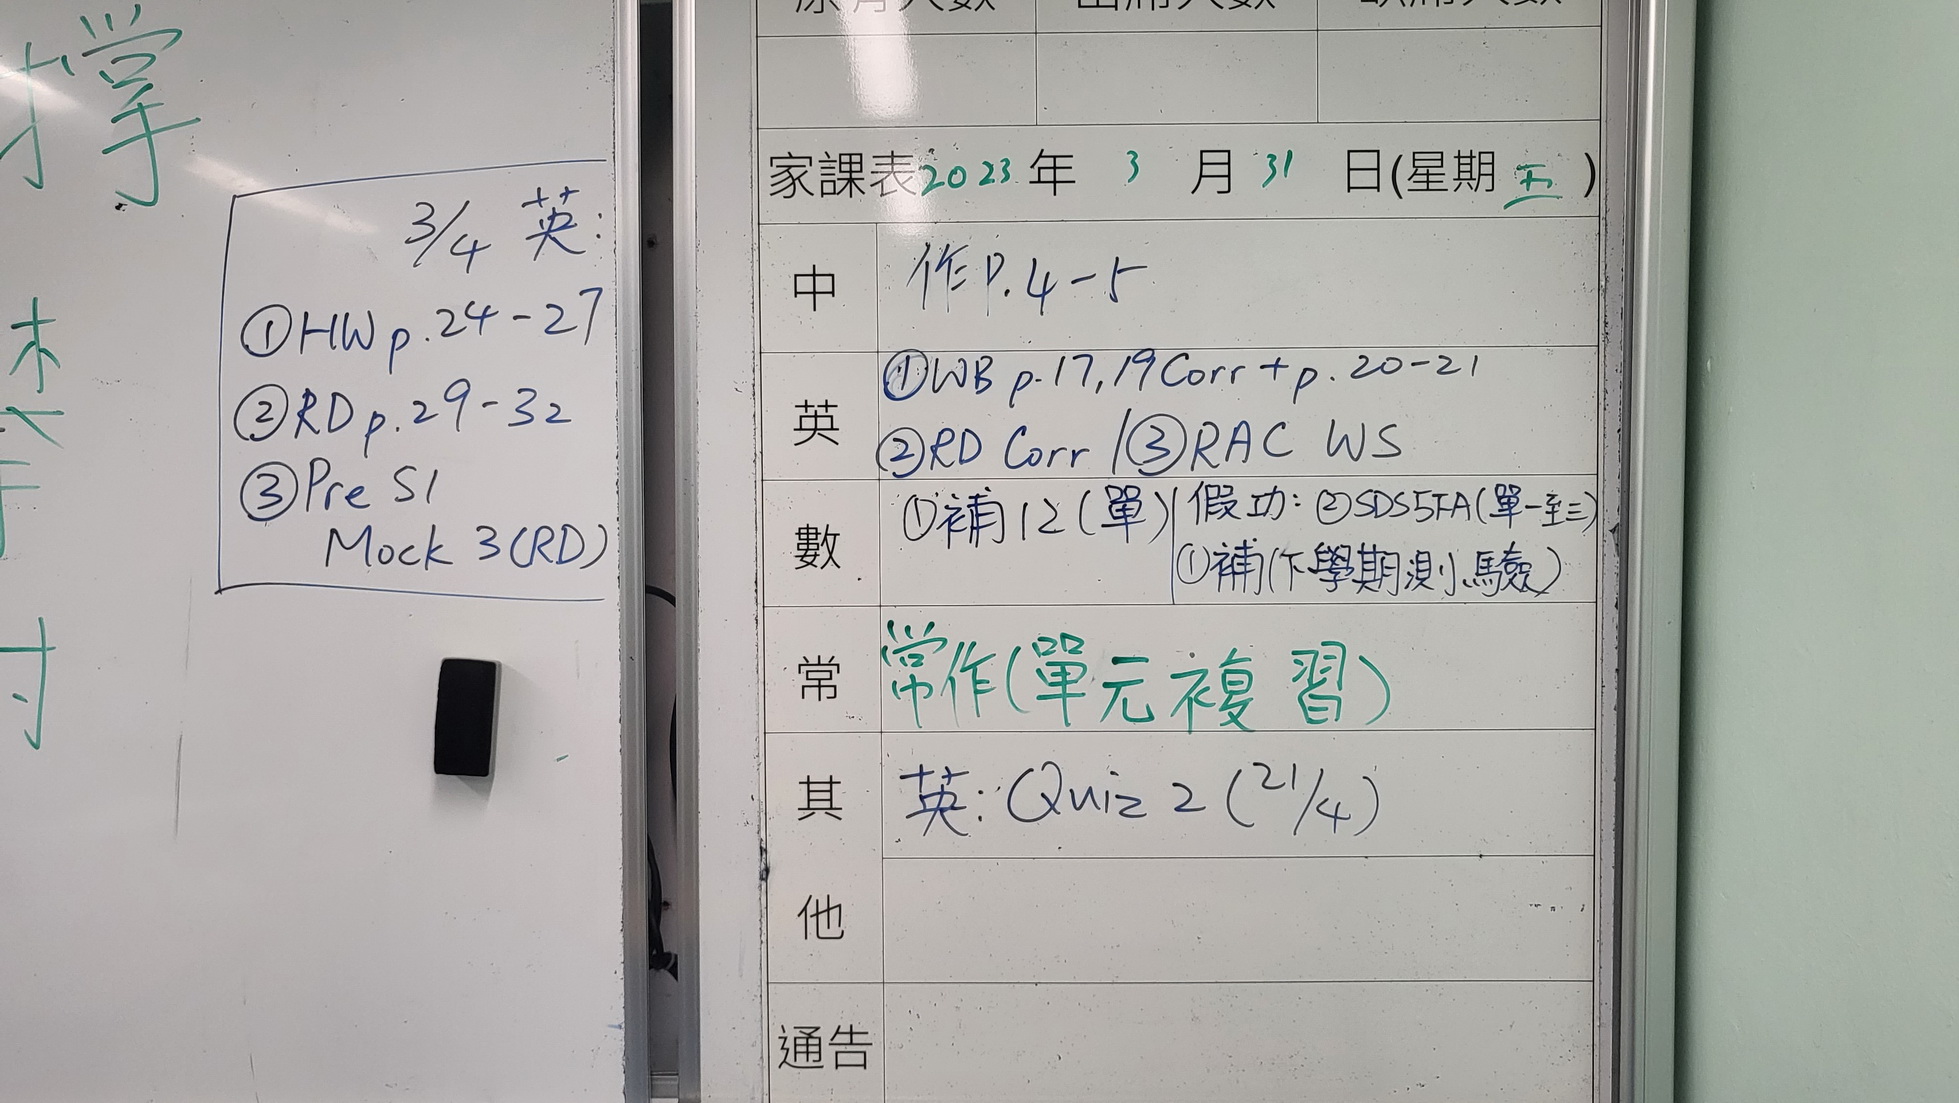 撑
3/4 英:
①HW p.24-27
②RD p.29-32
③Pre S1
Mock 3(RD)
寸
家課表2023年 3 月 31 日(星期 五 )
中
作P.4-5
英
①WB p.17,19 Corr + p.20-21
②RD Corr /③RAC WS
數
①補12(單)
假功: ②SDS5FA(單一至三)
①補(下學期測驗)
常
常作(單元複習)
其他
英: Quiz 2 (21/4)
通告